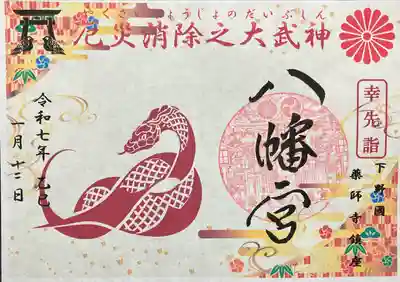 やくさいしょうじょのだいぶしん
厄災消除之大武神
幸先詣
下野國
薬師寺鎮座
八幡宮
令和七年 乙巳
一月十二日